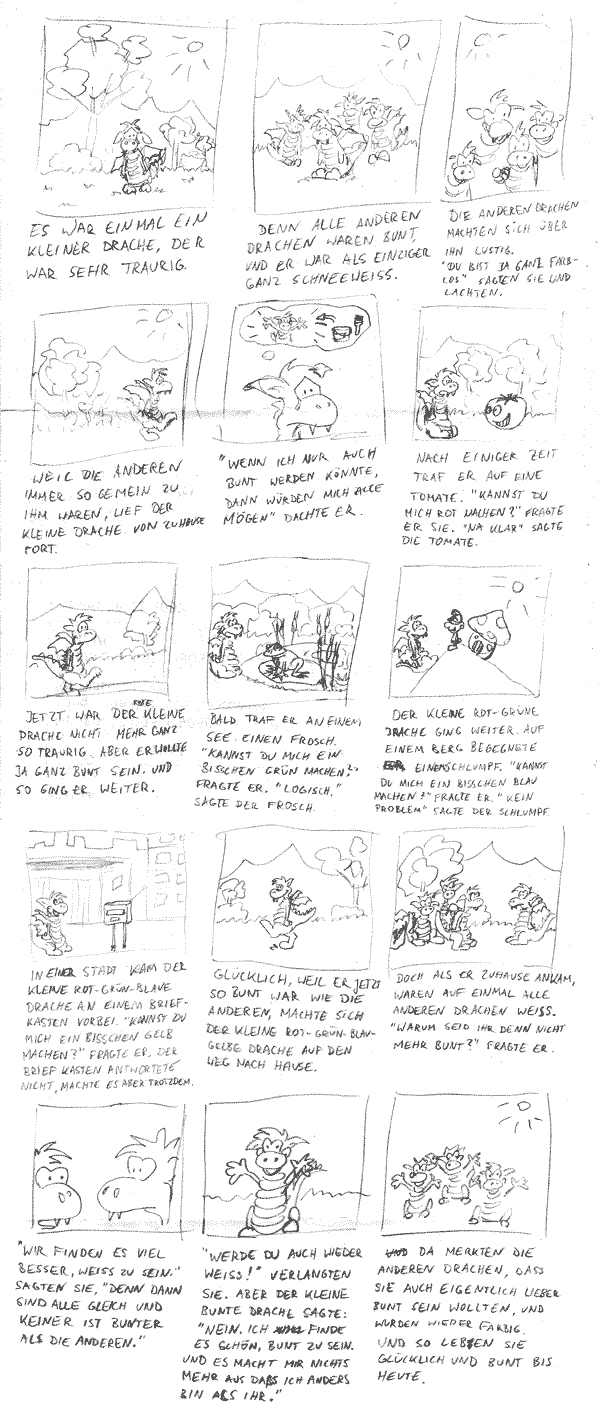 ES WAR EINMAL EIN
KLEINER DRACHE, DER
WAR SEHR TRAURIG.
DENN ALLE ANDEREN
DRACHEN WAREN BUNT,
UND ER WAR ALS EINZIGER
GANZ SCHNEEWEISS.
DIE ANDEREN DRACHEN
MACHTEN SICH ÜBER
IHN LUSTIG.
"DU BIST JA GANZ FARB-
LOS" SAGTEN SIE UND
LACHTEN.
WEIL DIE ANDEREN
IMMER SO GEMEIN ZU
IHM WAREN, LIEF DER
KLEINE DRACHE VON ZUHAUSE
FORT.
"WENN ICH NUR AUCH
BUNT WERDEN KÖNNTE,
DANN WÜRDEN MICH ALLE
MÖGEN" DACHTE ER.
NACH EINIGER ZEIT
TRAF ER AUF EINE
TOMATE. "KANNST DU
MICH ROT MACHEN?" FRAGTE
ER SIE. "NA KLAR" SAGTE
DIE TOMATE.
JETZT WAR DER ROTE KLEINE
DRACHE NICHT MEHR GANZ
SO TRAURIG. ABER ER WOLLTE
JA GANZ BUNT SEIN. UND
SO GING ER WEITER.
BALD TRAF ER AN EINEM
SEE EINEN FROSCH.
"KANNST DU MICH EIN
BISSCHEN GRÜN MACHEN?"
FRAGTE ER. "LOGISCH."
SAGTE DER FROSCH.
DER KLEINE ROT-GRÜNE
DRACHE GING WEITER. AUF
EINEM BERG BEGEGNETE
ER EINEM SCHLUMPF. "KANNST
DU MICH EIN BISSCHEN BLAU
MACHEN?" FRAGTE ER. "KEIN
PROBLEM" SAGTE DER SCHLUMPF.
IN EINER STADT KAM DER
KLEINE ROT-GRÜN-BLAUE
DRACHE AN EINEM BRIEF-
KASTEN VORBEI. "KANNST DU
MICH EIN BISSCHEN GELB
MACHEN?" FRAGTE ER. DER
BRIEFKASTEN ANTWORTETE
NICHT, MACHTE ES ABER TROTZDEM.
GLÜCKLICH, WEIL ER JETZT
SO BUNT WAR WIE DIE
ANDEREN, MACHTE SICH
DER KLEINE ROT-GRÜN-BLAU-
GELBE DRACHE AUF DEN
WEG NACH HAUSE.
DOCH ALS ER ZUHAUSE ANKAM,
WAREN AUF EINMAL ALLE
ANDEREN DRACHEN WEISS.
"WARUM SEID IHR DENN NICHT
MEHR BUNT?" FRAGTE ER.
"WIR FINDEN ES VIEL
BESSER, WEISS ZU SEIN."
SAGTEN SIE, "DENN DANN
SIND ALLE GLEICH UND
KEINER IST BUNTER
ALS DIE ANDEREN."
"WERDE DU AUCH WIEDER
WEISS!" VERLANGTEN
SIE. ABER DER KLEINE
BUNTE DRACHE SAGTE:
"NEIN. ICH FINDE
ES SCHÖN, BUNT ZU SEIN.
UND ES MACHT MIR NICHTS
MEHR AUS DASS ICH ANDERS
BIN ALS IHR."
UND DA MERKTEN DIE
ANDEREN DRACHEN, DASS
SIE AUCH EIGENTLICH LIEBER
BUNT SEIN WOLLTEN, UND
WURDEN WIEDER FARBIG.
UND SO LEBTEN SIE
GLÜCKLICH UND BUNT BIS
HEUTE.